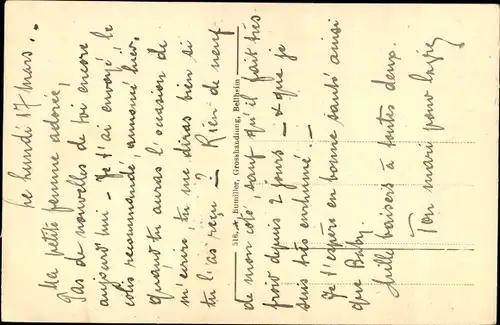 Le Lundi 17 Mars..
Ma petite femme adorée,
Pas de nouvelles de toi encore
aujourd'hui - Je t'ai envoyé le
colis recommandé, annoncé hier.
Quand tu auras l'occasion de
m'écrire, tu me diras bien si
tu l'as reçu - ? Rien de neuf
de mon coté, sauf qu'il fait très
froid depuis 2 jours - & que je
suis très enrhumé. -
Je t'espère en bonne santé ainsi
que Baby.
Mille baisers à toutes deux.
Ton mari pour la vie
Bumiller, Grosshandlung, Bellheim